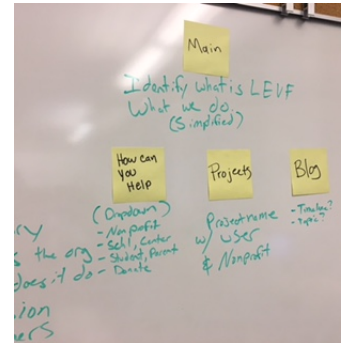 Main
Identify what is LEVF
What we do.
(Simplified)
How can
You
Help
(Dropdown)
- Nonprofit
- Schl, Center
- Student, Parent
- Donate
Projects
Project name
w/ user
& Nonprofit
Blog
- Timeline?
- Topic?
ry
s the org
does it do
ion
ers